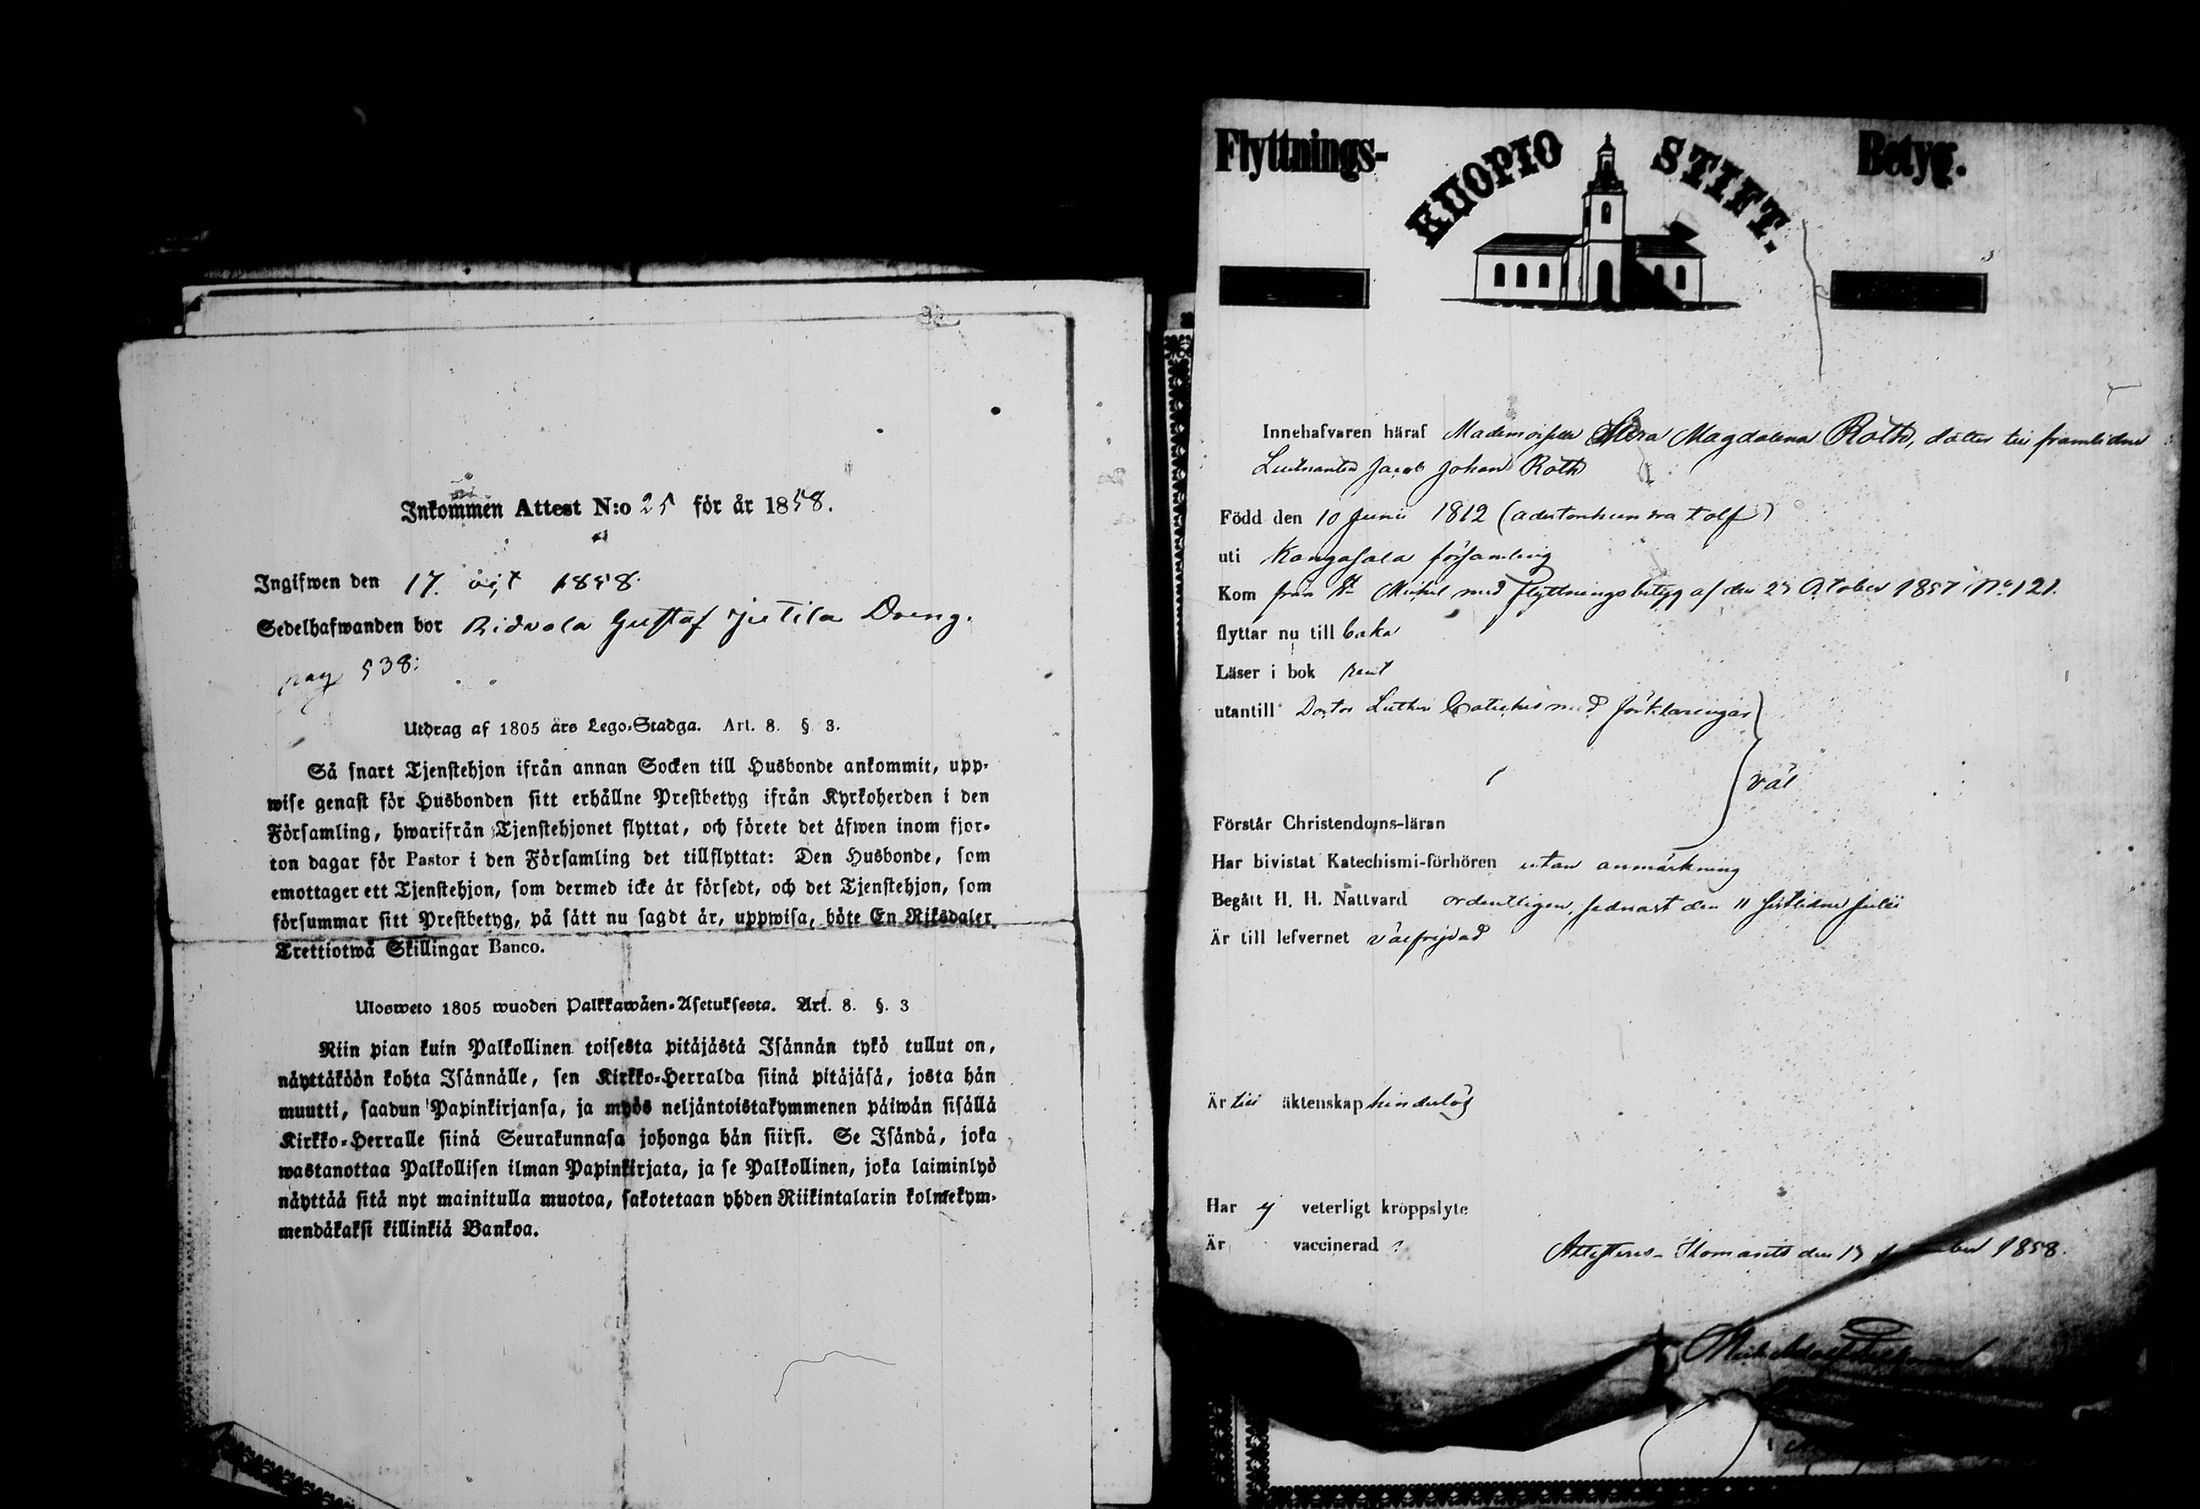 Inkommen Attest N:o 25 för år 1858.
Ingifwen den 17 1858.
Sedelhafwanden bor Ridvala Gustaf Jutila Dreng.
pag 538:
Utdrag af 1805 års Lego-Stadga. Art. 8. § 3.
Så snart Tjenstehjon ifrån annan Socken till Husbonde ankommit, upp-
wise genast för Husbonden sitt erhållne Prestbetyg ifrån Kyrkoherden i den
Församling, hwarifrån Tjenstehjonet flyttat, och förete det äfwen inom fjor-
ton dagar för Pastor i den Församling det tillflyttat: Den Husbonde, som
emottager ett Tjenstehjon, som dermed icke är försedt, och det Tjenstehjon, som
försummar sitt Prestbetyg, på sätt nu sagdt är, uppwisa, böte En Riksdaler
Trettiotwå Skillingar Banco.
Ulosweto 1805 wuoden Palkkawäen-Asetuksesta. Art. 8. §. 3
Niin pian kuin Palkollinen toisesta pitäjästä Isännän tykö tullut on,
näyttäköön kohta Isännälle, sen Kirkko-Herralda siinä pitäjäsä, josta hän
muutti, saadun Papinkirjansa, ja myös neljäntoistakymmenen päiwän sisällä
Kirkko-Herralle siinä Seurakunnasa johonga hän siirsi. Se Isändä, joka
wastanottaa Palkollisen ilman Papinkirjata, ja se Palkollinen, joka laiminlyö
näyttää sitä nyt mainitulla muotoa, sakotetaan yhden Riikintalarin kolmekym-
mendäkaksi killinkiä Bankoa.
Flyttnings- KUOPIO STIFT. Betyg.
Innehafvaren häraf Mademoiselle Magdalena Roth, dotter till framlidne
Lieutnanten Jacob Johan Roth
Född den 10 Junii 1812 (adertonhundra tolf)
uti Kangasala församling
Kom från St Michel med flyttningsbetyg af den 25 October 1857 No 121.
flyttar nu till baka
Läser i bok rent
utantill Doctor Luthers Catechés med förklaringar
väl
Förstår Christendoms-läran
Har bivistat Katechismi-förhören utan anmärkning
Begått H. H. Nattvard ordentligen, sednast den 11 sistlidne Julii
Är till lefvernet välfrejdad
Är till äktenskap hinderlös
Har ej veterligt kroppslyte
Är vaccinerad
Attesteras den 1858.